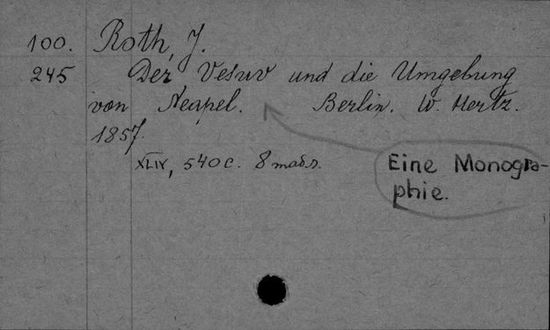 100. Roth, J.
245 Der Vesuv und die Umgebung
von Neapel. Berlin. W. Hertz.
1857.
XLIX, 540 c. 8
Eine Monogra-
phie.